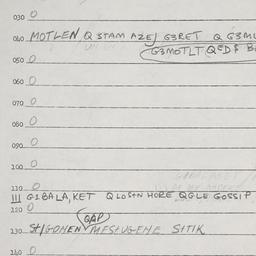 030 0
040 MOTLEN Q STAM AZEJ G3RET Q G3ML
G3MOTLT QEDS B
050 0
060 0
070 0
080 0
090 0
100 0
110 0
111 G1BALA, KET Q LOSTN HORE QGLE GOSSIP
120 0
GAP
130 ST/GOMEN MESHUGENE SITIK
140 0